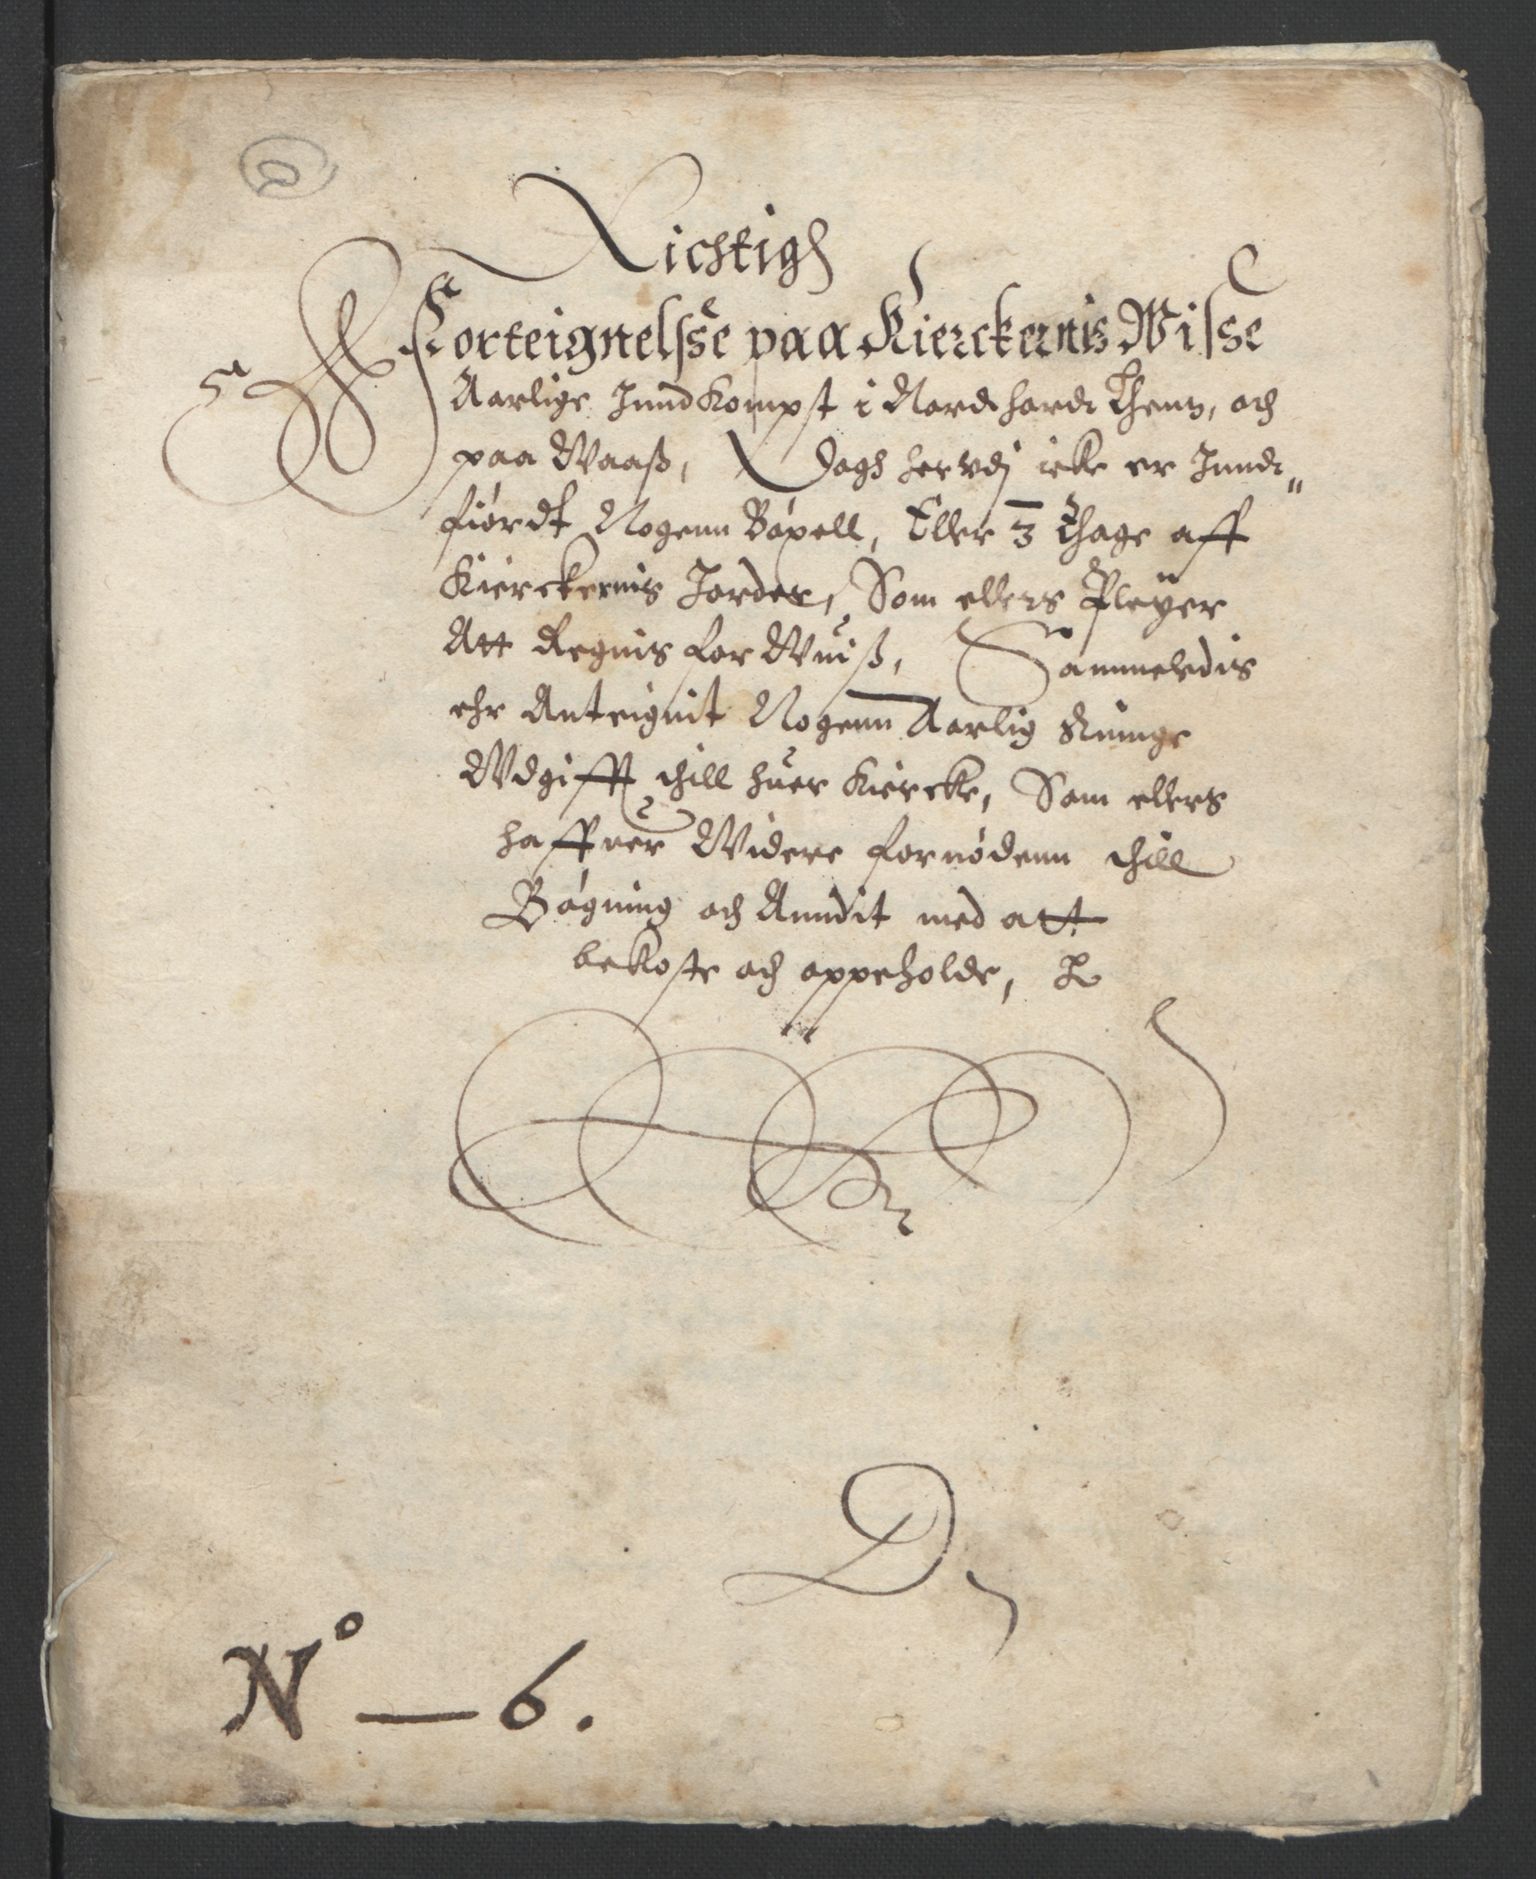 Richtigh
Forteignelsse paa Kierckernis Wisse
Aarlige Inndkompst i Nordhordlhenn, och
paa Waaß, Dogh hervdj icke er Inndt
fiørdt Nogenn Bøxell, Eller 3 thage aff
Kierckernis Jorder, Som ellers Pleÿer
Att Regnis for Wuiß, Sammeledis
ehr Anteignit Nogenn Aarlig Ringe
Wdgifft thill huer Kiercke, Som ellers
haffuer Widere fornødenn thill
Bøgning och Anndit med att
bekoste och oppeholde,
D
N° — 6.